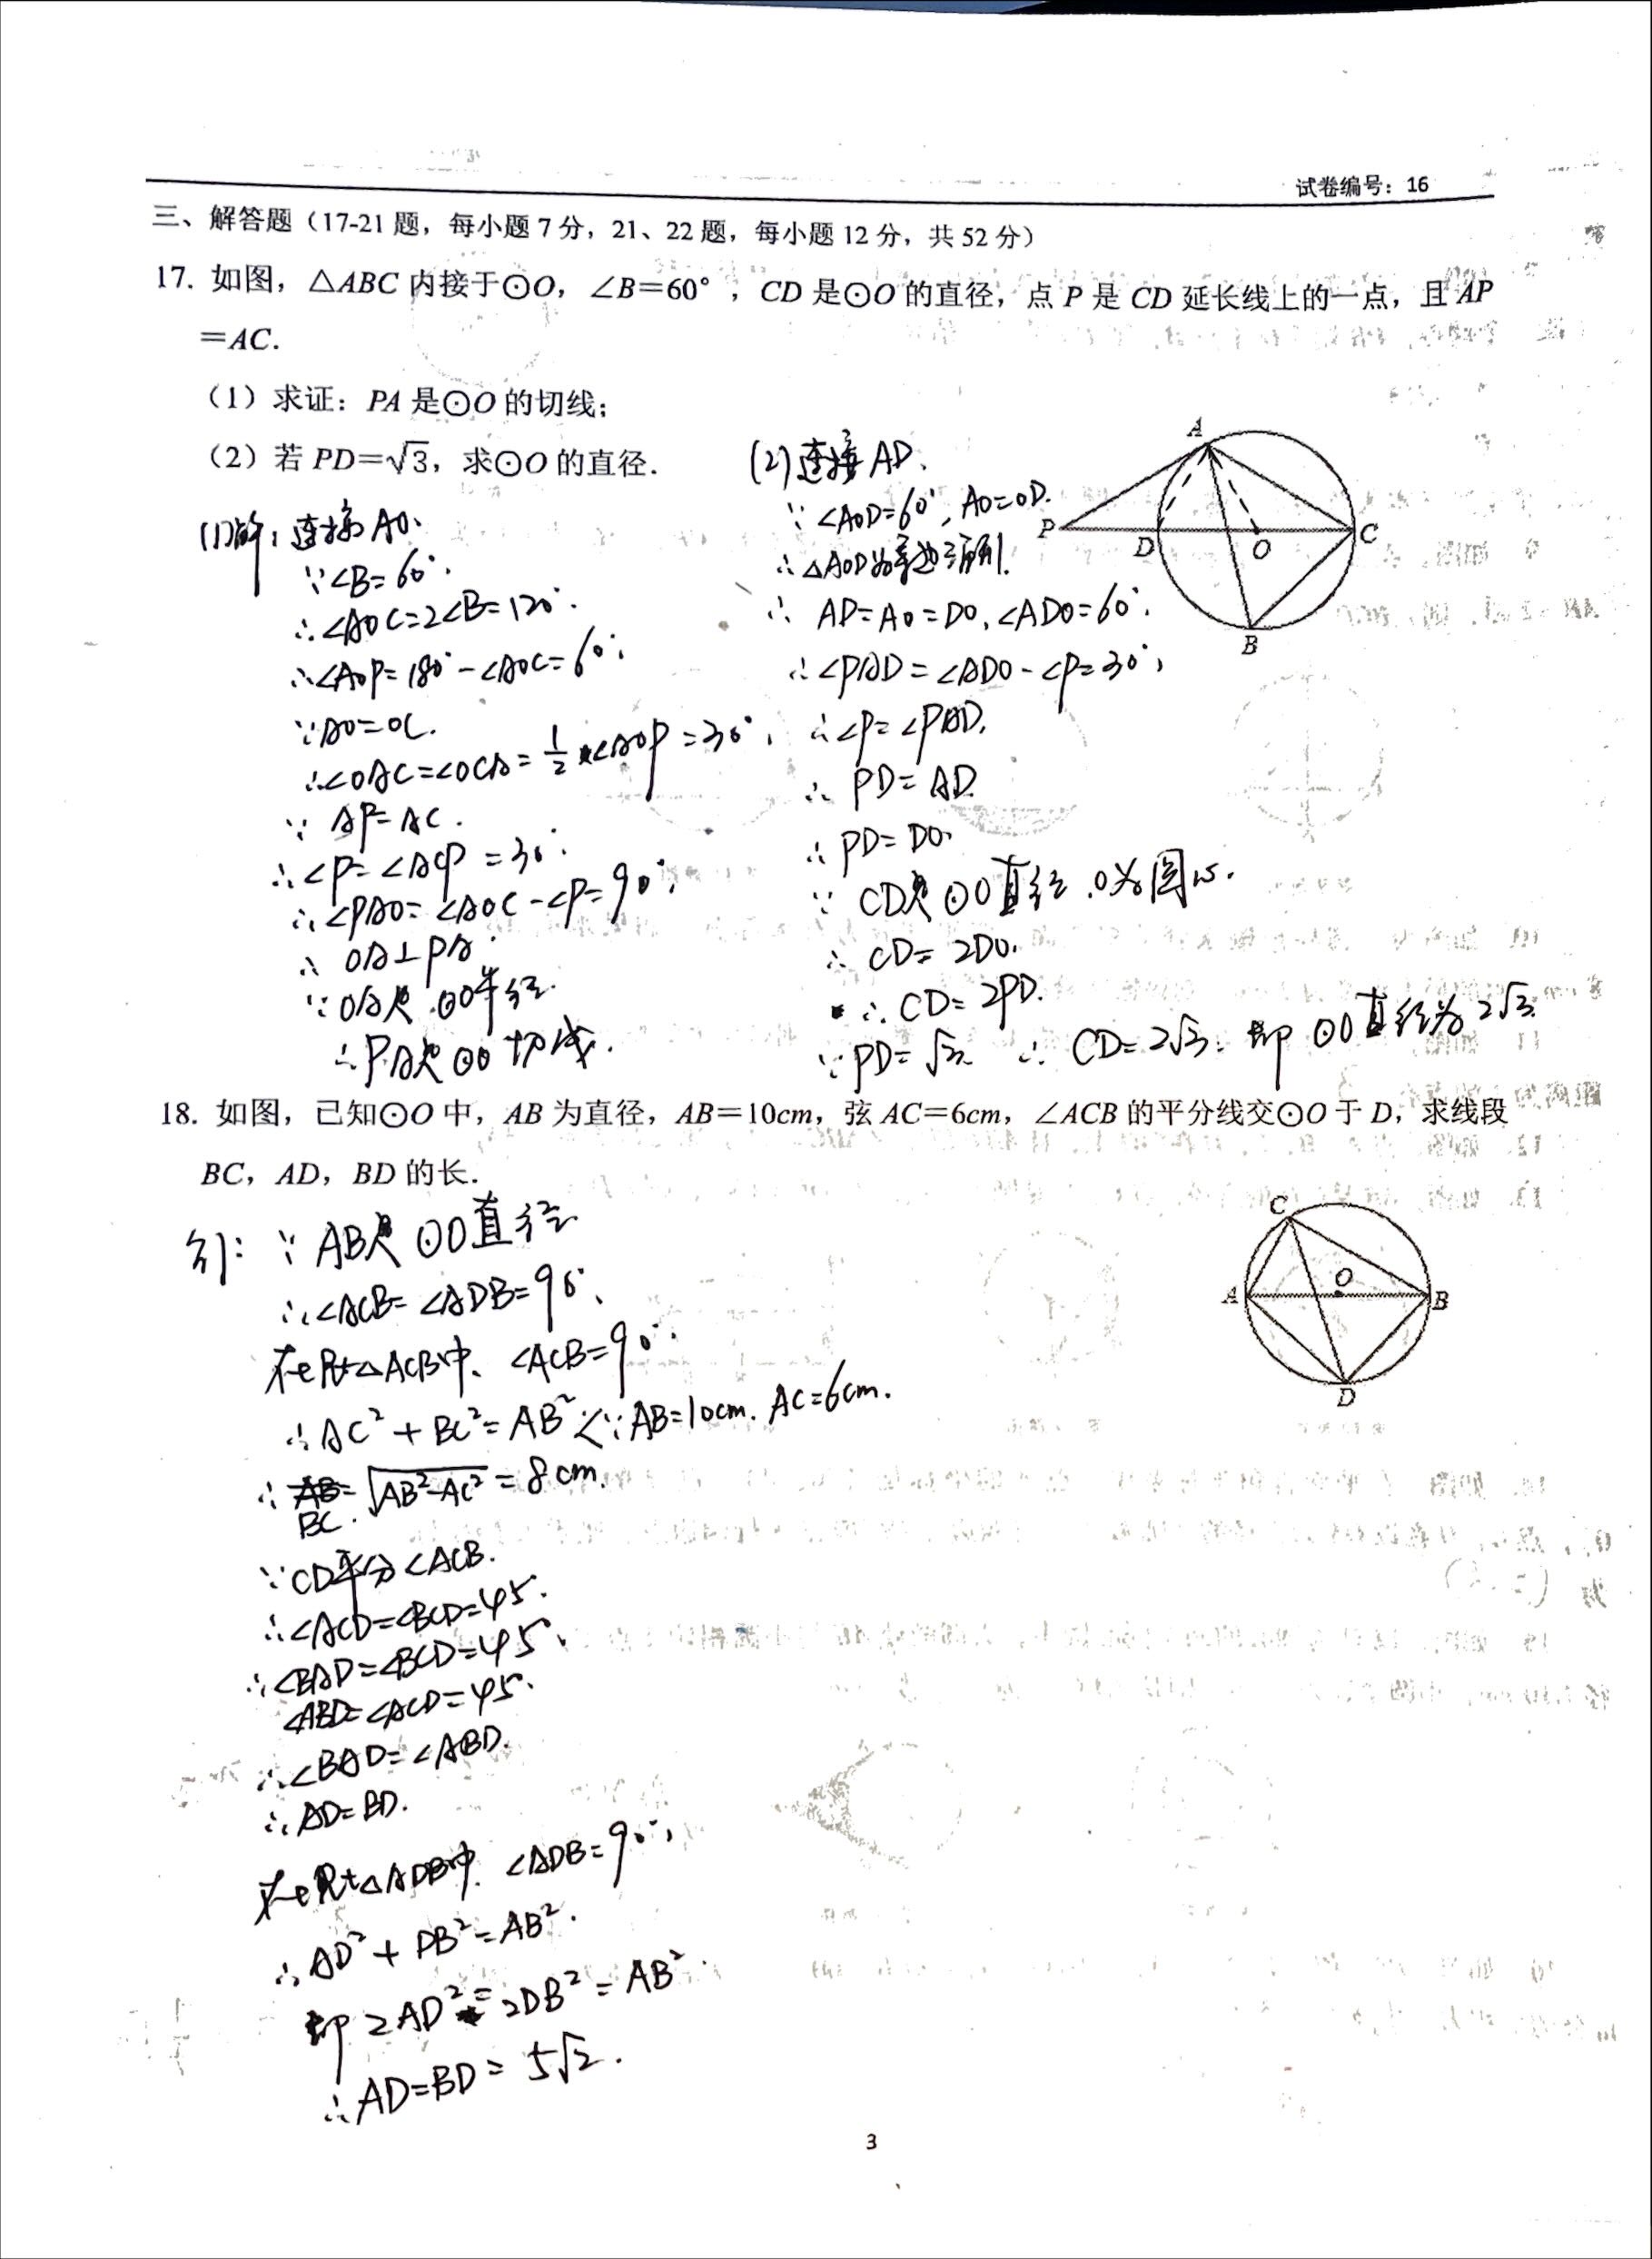 试卷编号：16
三、解答题（17-21 题，每小题 7 分，21、22 题，每小题 12 分，共 52 分）
17. 如图，△ABC 内接于⊙O，∠B＝60°，CD 是⊙O 的直径，点 P 是 CD 延长线上的一点，且 AP
＝AC.
（1）求证：PA 是⊙O 的切线；
（2）若 PD＝√3，求⊙O 的直径.
(1)解：连接AO.
∵∠B=60°.
∴∠AOC=2∠B=120°.
∴∠AOP=180°-∠AOC=60°.
∵AO=OC.
∴∠OAC=∠OCA=1/2∠AOP=30°.
∵AP=AC.
∴∠P=∠ACP=30°.
∴∠PAO=∠AOC-∠P=90°.
∴OA⊥PA.
∵OA是⊙O半径.
∴PA是⊙O切线.
(2)连接AD.
∵∠AOD=60°, AO=OD.
∴△AOD为等边三角形.
∴AD=AO=DO, ∠ADO=60°.
∴∠PAD=∠ADO-∠P=30°.
∴∠P=∠PAD.
∴PD=AD.
∴PD=DO.
∵CD是⊙O直径.O为圆心.
∴CD=2DO.
∴CD=2PD.
∵PD=√3 ∴CD=2√3. 即⊙O直径为2√3.
A
P
D
O
C
B
18. 如图，已知⊙O 中，AB 为直径，AB＝10cm，弦 AC＝6cm，∠ACB 的平分线交⊙O 于 D，求线段
BC，AD，BD 的长.
解：∵AB是⊙O直径
∴∠ACB=∠ADB=90°.
在Rt△ACB中. ∠ACB=90°.
∴AC²+BC²=AB² ∵AB=10cm. AC=6cm.
∴BC=√AB²-AC²=8cm.
∵CD平分∠ACB.
∴∠ACD=∠BCD=45°.
∴∠BAD=∠BCD=45°.
∠ABD=∠ACD=45°.
∴∠BAD=∠ABD.
∴AD=BD.
在Rt△ADB中. ∠ADB=90°.
∴AD²+DB²=AB².
即2AD²=2DB²=AB².
∴AD=BD=5√2.
C
O
A
B
D
3